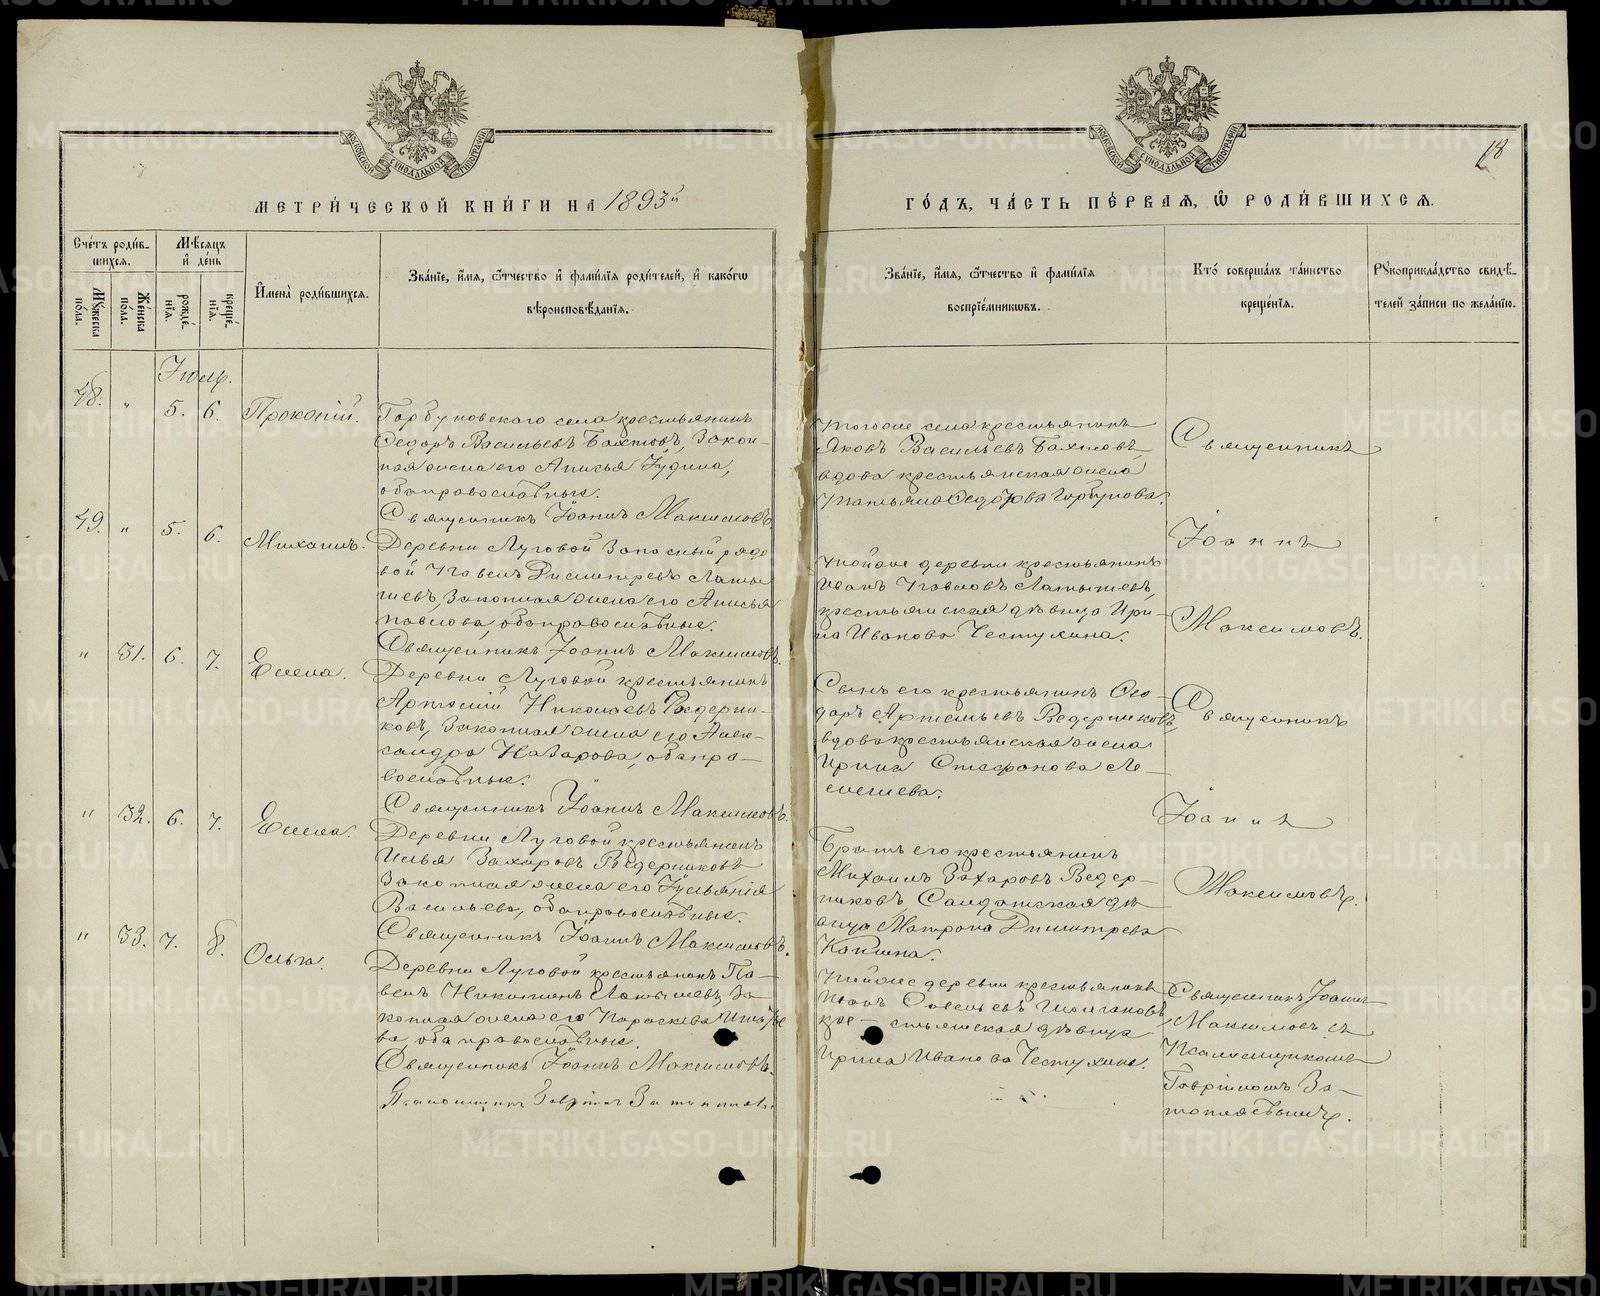 МЕТРИ́ЧЕСКОЙ КНИ́ГИ НА 1893й
ГО́ДЪ, ЧА́СТЬ ПЕ́РВАЯ, Ѽ РОДИ́ВШИХСЯ.
18
Сче́тъ роди́в-
шихся.
Мѣ́сяцъ
и҆ де́нь
Мꙋ́жеска
по́ла.
Же́нска
по́ла.
рожде́-
нїѧ.
креще́-
нїѧ.
И҆мена̀ роди́вшихся.
Зва́нїе, и҆́мѧ, ѻ҆́тчество и҆ фамѝлїѧ роди́телей, и҆ како́гѡ
вѣроисповѣ́данїѧ.
Зва́нїе, и҆́мѧ, ѻ҆́тчество и҆ фамѝлїѧ
воспрїе́мникѡвъ.
Кто̀ соверша́лъ та́инство
креще́нїѧ.
Рꙋкоприкла́дство свидѣ́-
телей за́писи по жела́нїю.
Іюль.
48. " 5. 6. Прокопій.
Горбуновскаго села крестьянинъ
Ѳедоръ Васильевъ Бахтовъ, закон-
ная жена его Анисья Іудина,
оба православные.
Священникъ Іоаннъ Максимовъ.
Тогоже села крестьянинъ
Яковъ Васильевъ Бахтовъ,
вдова крестьянская жена
Татьяна Ѳедорова Горбунова.
Священникъ
Іоаннъ
Максимовъ.
49. " 5. 6. Михаилъ.
Деревни Луговой запасный рядо
вой Павелъ Димитревъ Латы
шевъ, законная жена его Анисья
Павлова, оба православные.
Священникъ Іоаннъ Максимовъ.
Тойже деревни крестьянинъ
Иванъ Павловъ Латышевъ,
крестьянская дѣвица Ири-
на Иванова Честухина.
" 31. 6. 7. Елена.
Деревни Луговой крестьянинъ
Артемій Николаевъ Ведерни-
ковъ, законная жена его Алек-
сандра Назарова, оба пра-
вославные.
Священникъ Іоаннъ Максимовъ.
Сынъ его крестьянинъ Ѳео-
доръ Артемьевъ Ведерниковъ,
вдова крестьянская жена
Ирина Стефанова
Священникъ
Іоаннъ
Максимовъ.
" 32. 6. 7. Елена.
Деревни Луговой крестьянинъ
Илья Захаровъ Ведерниковъ
законная жена его Іульянія
Васильева, оба православные.
Священникъ Іоаннъ Максимовъ.
Братъ его крестьянинъ
Михаилъ Захаровъ Ведер-
никовъ, Солдатская дѣ
вица Матрона Димитрева
" 33. 7. 8. Ольга.
Деревни Луговой крестьянинъ Па-
велъ Никитинъ Латышевъ, за-
конная жена его Параскева
ва, оба православные.
Священникъ Іоаннъ Максимовъ.
Псаломщикъ Гавріилъ
Тойже деревни крестьянинъ
кре- стьянская дѣвица
Ирина Иванова Честухина.
Священникъ Іоаннъ
Максимовъ съ
Псаломщикомъ
Гавріиломъ За-
METRIKI.GASO-URAL.RU